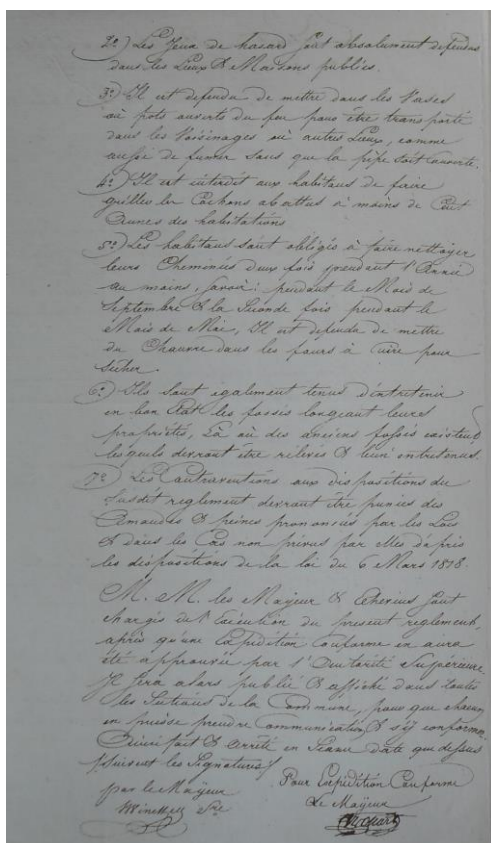 2º) Les Jeux de hazard sont absolument defendus
dans les Lieux & Maisons publics.
3º) Il est defendu de mettre dans les Vases
où pots ouverts du feu pour être transporté
dans les Voisinages où autres Lieux, comme
aussi de fumer sans que la pipe soit couverte.
4º) Il est interdit aux habitans de faire
griller les Cochons abattus à moins de Cent
Aunes des habitations
5º) Les habitans sont obligés à faire nettoyer
leurs Cheminées deux fois pendant l'Année
au moins, savoir: pendant le Mois de
Septembre & la Seconde fois pendant le
Mois de Mai, Il est defendu de mettre
du Chanvre dans les fours à cuire pour
secher.
6º) Ils sont egalement tenus d'entretenir
en bon Etat les fossés longeant leurs
propriétés, Là où des anciens fossés existent
lesquels devront être relevés & bien entretenus.
7º) Les Contraventions aux dispositions du
susdit reglement devront être punies des
Amendes & peines prononcées par les Lois
& dans les Cas non prévus par elles d'après
les dispositions de la loi du 6 Mars 1818.
M. M. les Mayeur & Echevins sont
chargés de l'Exécution du present reglement,
après qu'une Expédition Conforme en aura
été approuvée par l'Autorité Supérieure.
Il sera alors publié & affiché dans toutes
les Sections de la Commune, pour que chacun
en puisse prendre Communication & s'y conformer
Ainsi fait & arrêté en Séance date que dessus
/suivent les Signatures/
Pour Expédition Conforme
par le Mayeur
Le Mayeur